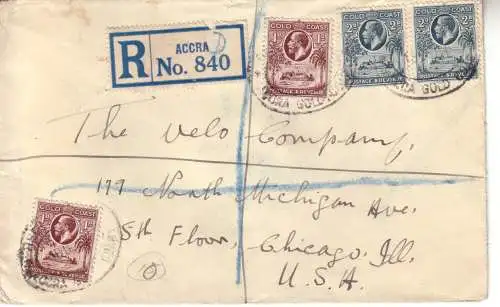 R
ACCRA
No. 840
GOLD COAST
1D 1D
POSTAGE & REVENUE
GOLD COAST
2D 2D
POSTAGE & REVENUE
GOLD COAST
2D 2D
POSTAGE & REVENUE
ACCRA GOLD
ACCRA GOLD
The Velo Company,
177 North Michigan Ave.
5th Floor, Chicago. Ill.
U.S.A.
GOLD COAST
1D 1D
POSTAGE & REVENUE
ACCRA
10